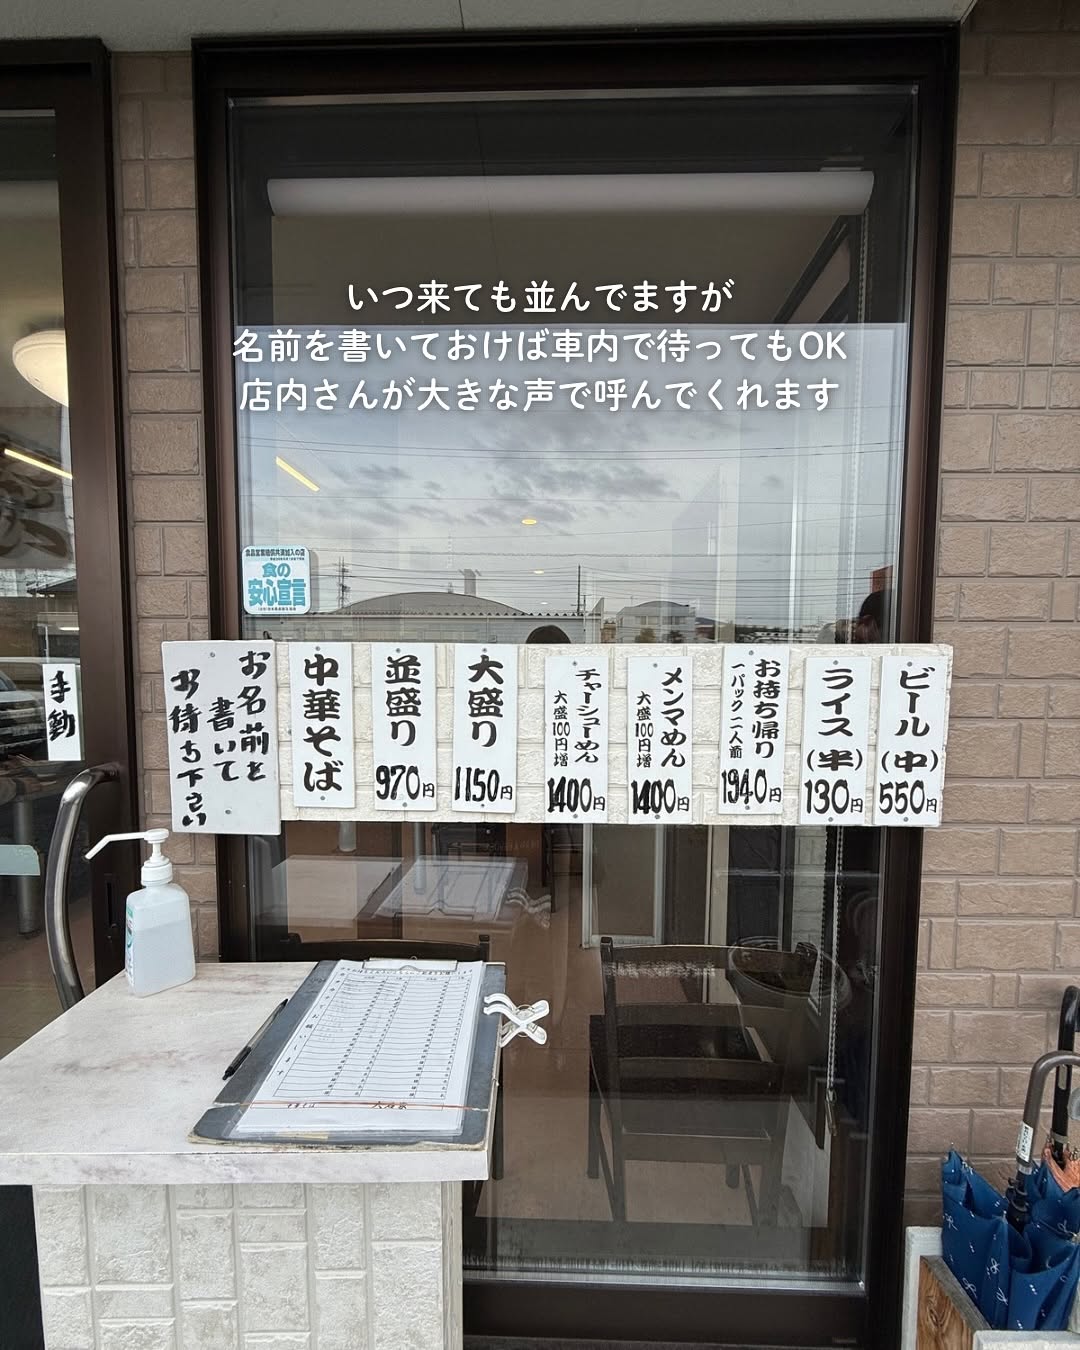 いつ来ても並んでますが
名前を書いておけば車内で待ってもOK
店内さんが大きな声で呼んでくれます
食品営業賠償共済加入の店
食の
安心宣言
手動
お名前を
書いて
お待ち下さい
中華そば
並盛り
970円
大盛り
1150円
チャーシューめん
大盛100円増
1400円
メンマめん
大盛100円増
1400円
お持ち帰り
一パック二人前
1940円
ライス(半)
130円
ビール(中)
550円